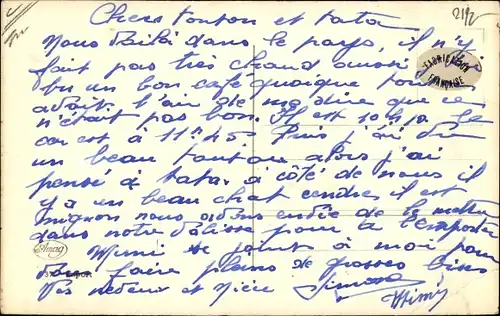 Chers tonton et tata
Nous voilà dans le pays, il n'y
fait pas très chaud aussi j'ai
bu un bon café quoique tonton
avait l'air de me dire que ce
n'était pas bon. Il est 10 h 40 le
car est à 11h45 Puis j'ai vu
un beau toutou alors j'ai
pensé à tata à côté de nous il
y a un beau chat cendres il est
mignon nous avons envie de le mettre
dans notre valisse pour l'emporter
Mimi se joint à moi pour
vous faire pleins de grosses bises
Vos neveux et Nièce Simone
Mimi
2192
FABRICATION
FRANÇAISE
Amag